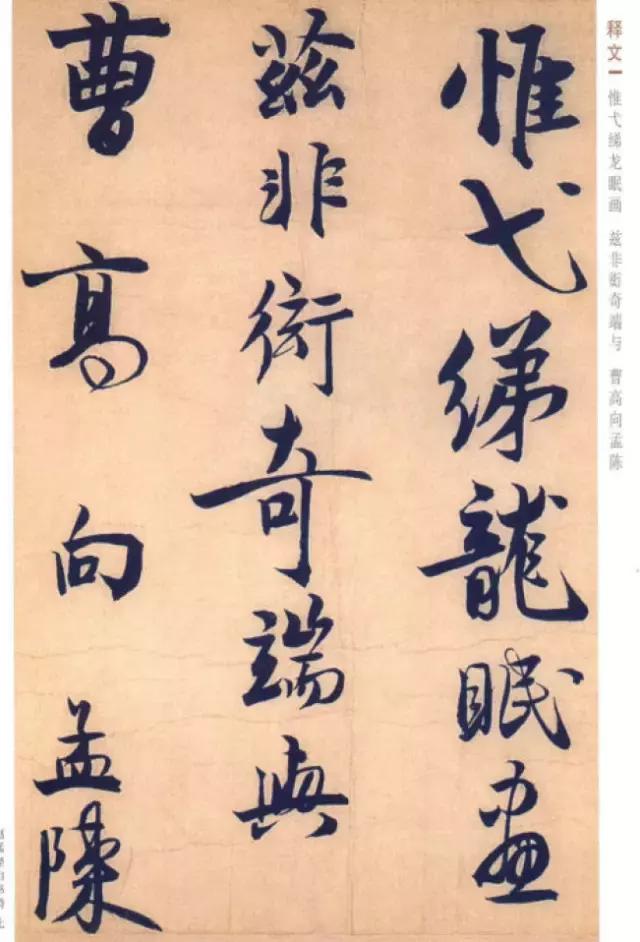 释文一 惟弋绨龙眠画 兹非衒奇端与 曹高向孟陈
惟弋綈龍眠畫
茲非衒奇端與
曹高向孟陳